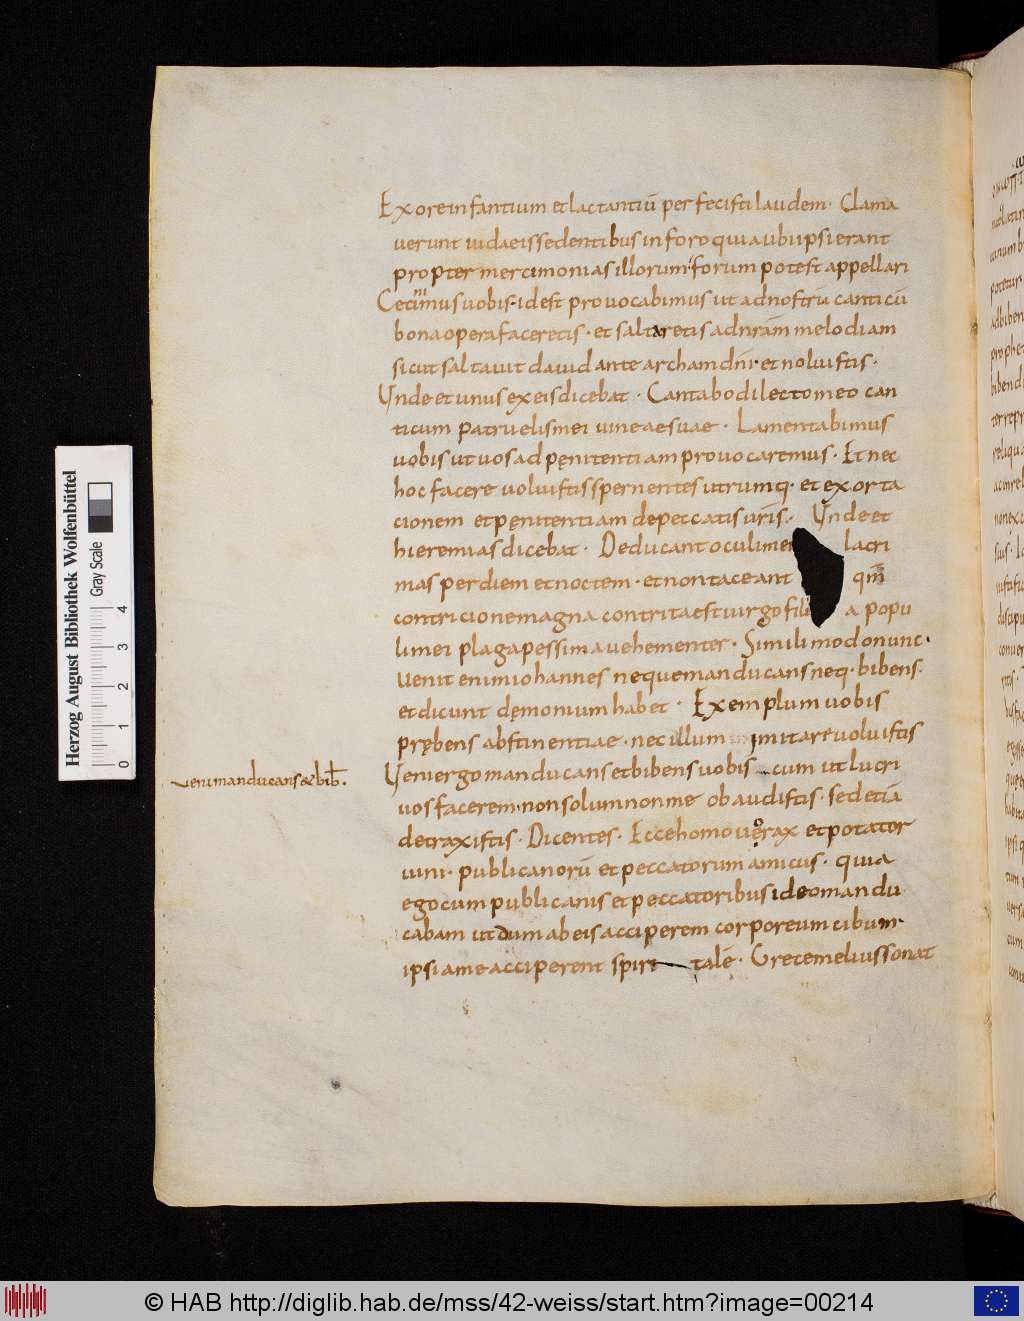 Ex ore infantium et lactantiū perfecisti laudem · Clama
uerunt iudaeis sedentibus in foro quia ubi ipsi erant
propter mercimonias illorum · forum potest appellari
Cecinimus uobis · id est prouocabimus ut ad nostrū canticū
bona opera faceretis · et saltaretis ad nr̄am melodiam
sicut saltauit dauid ante archam dn̄i et noluistis ·
Unde et unus ex eis dicebat · Cantabo dilecto meo can
ticum patruelis mei uineae suae · Lamentabimus
uobis ut uos ad pęnitentiam prouocaremus · Et nec
hoc facere uoluistis spernentes utrumq· et exorta
cionem et pęnitentiam de peccatis uris̄ · Unde et
hieremias dicebat · Deducant oculi mei lacri
mas per diem et noctem · et non taceant qm̄
contricione magna contrita est uirgo filia popu
li mei plaga pessima uehementer · Simili modo nunc ·
uenit enim iohannes neque manducans neq· bibens ·
et dicunt demonium habet · Exemplum uobis
prębens abstinentiae · nec illum imitare uoluistis
Veni ergo manducans et bibens uobiscum ut lucri
ueni manducans & bib̄.
uos facerem · non solum non me obaudistis · sed etiā
detraxistis · Dicentes · Ecce homo uorax et potator
uini · publicanorū et peccatorum amicus · quia
ego cum publicanis et peccatoribus ideo mandu
cabam ut dum ab eis acciperem corporeum cibum ·
ipsi a me acciperent spiritalē · Grece melius sonat
Herzog August Bibliothek Wolfenbüttel
Gray Scale
0 1 2 3 4
© HAB http://diglib.hab.de/mss/42-weiss/start.htm?image=00214